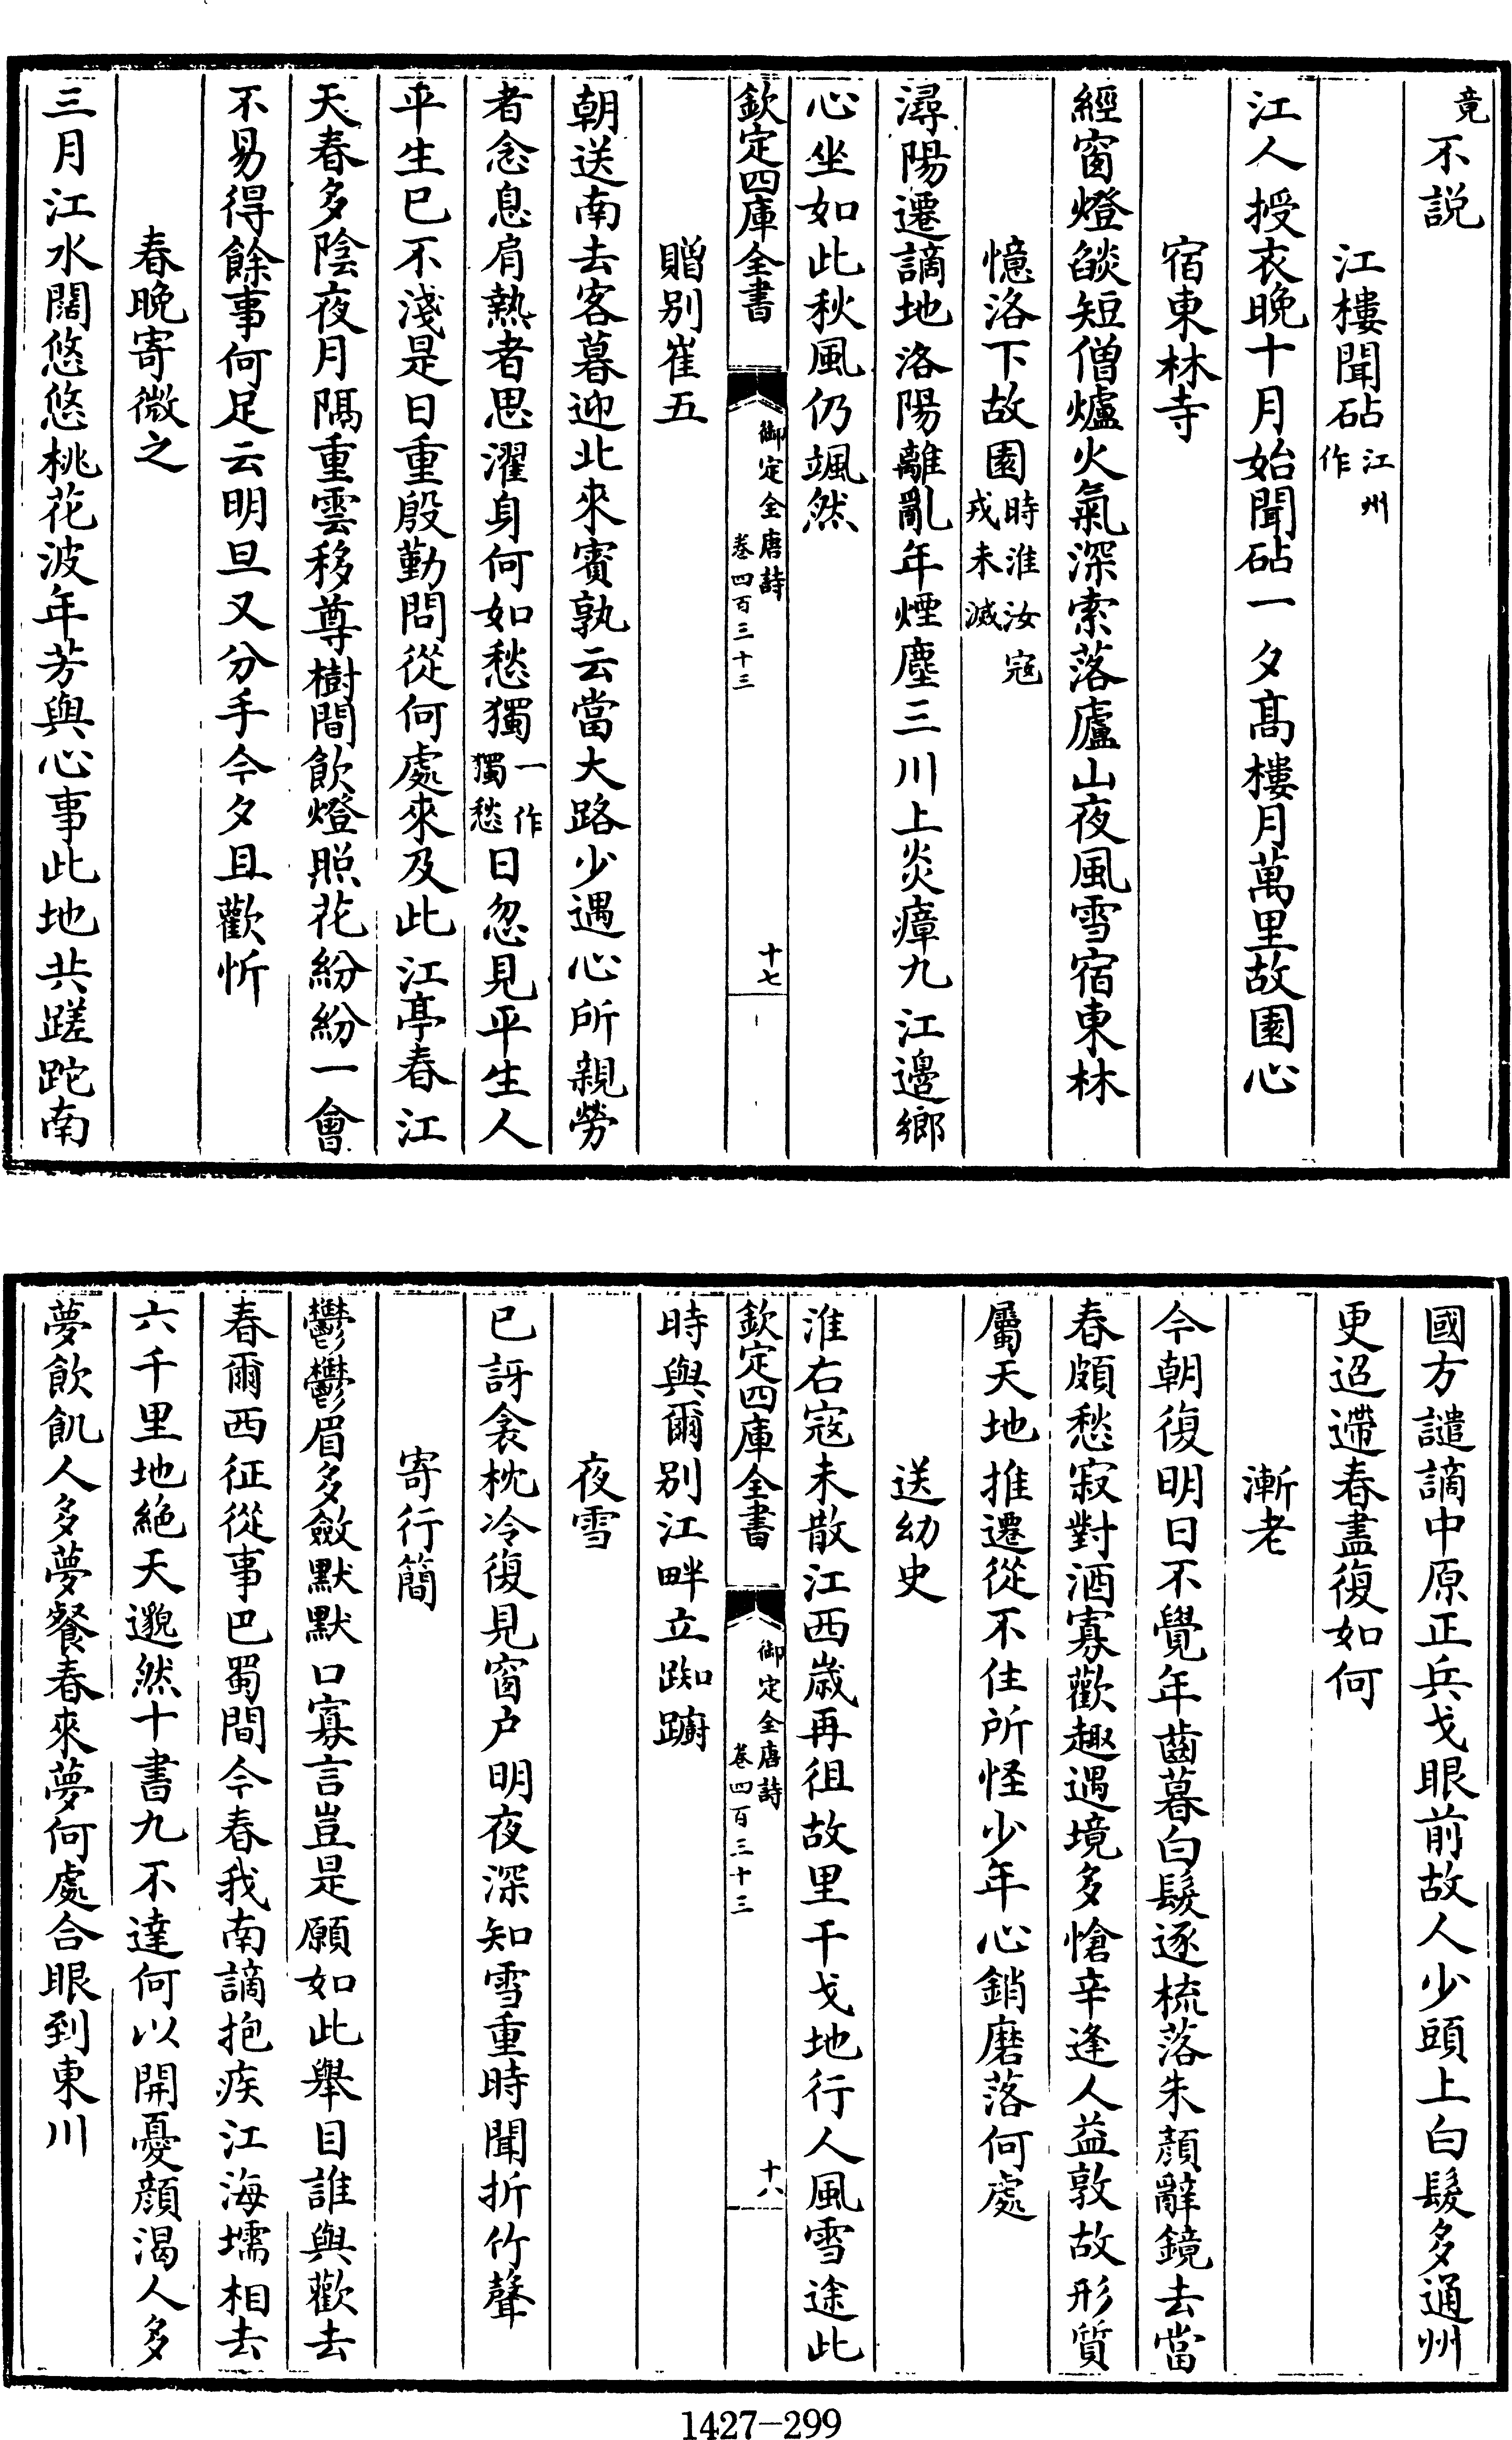 竟不説
江樓聞砧江州作
江人授衣晚十月始聞砧一夕髙樓月萬里故園心
宿東林寺
經窗燈燄短僧爐火氣深索落廬山夜風雪宿東林
憶洛下故園時淮汝寇戎未滅
潯陽遷謫地洛陽離亂年煙塵三川上炎瘴九江邊鄉
心坐如此秋風仍颯然
欽定四庫全書 御定全唐詩卷四百三十三 十七
贈别崔五
朝送南去客暮迎北來賓孰云當大路少遇心所親勞
者念息肩熱者思濯身何如愁獨一作獨愁日忽見平生人
平生已不淺是日重殷勤問從何處來及此江亭春江
天春多陰夜月隔重雲移尊樹間飲燈照花紛紛一會
不易得餘事何足云明旦又分手今夕且歡忻
春晚寄微之
三月江水闊悠悠桃花波年芳與心事此地共蹉跎南
國方譴謫中原正兵戈眼前故人少頭上白髮多通州
更迢遰春盡復如何
漸老
今朝復明日不覺年齒暮白髮逐梳落朱顔辭鏡去當
春頗愁寂對酒寡歡趣遇境多愴辛逢人益敦故形質
屬天地推遷從不住所怪少年心銷磨落何處
送幼史
淮右寇未散江西歲再徂故里干戈地行人風雪途此
欽定四庫全書 御定全唐詩卷四百三十三 十八
時與爾别江畔立踟蹰
夜雪
已訝衾枕冷復見窗户明夜深知雪重時聞折竹聲
寄行簡
鬱鬱眉多斂默默口寡言豈是願如此舉目誰與歡去
春爾西征從事巴蜀間今春我南謫抱疾江海壖相去
六千里地絶天邈然十書九不達何以開憂顔渴人多
夢飲飢人多夢餐春來夢何處合眼到東川
1427-299